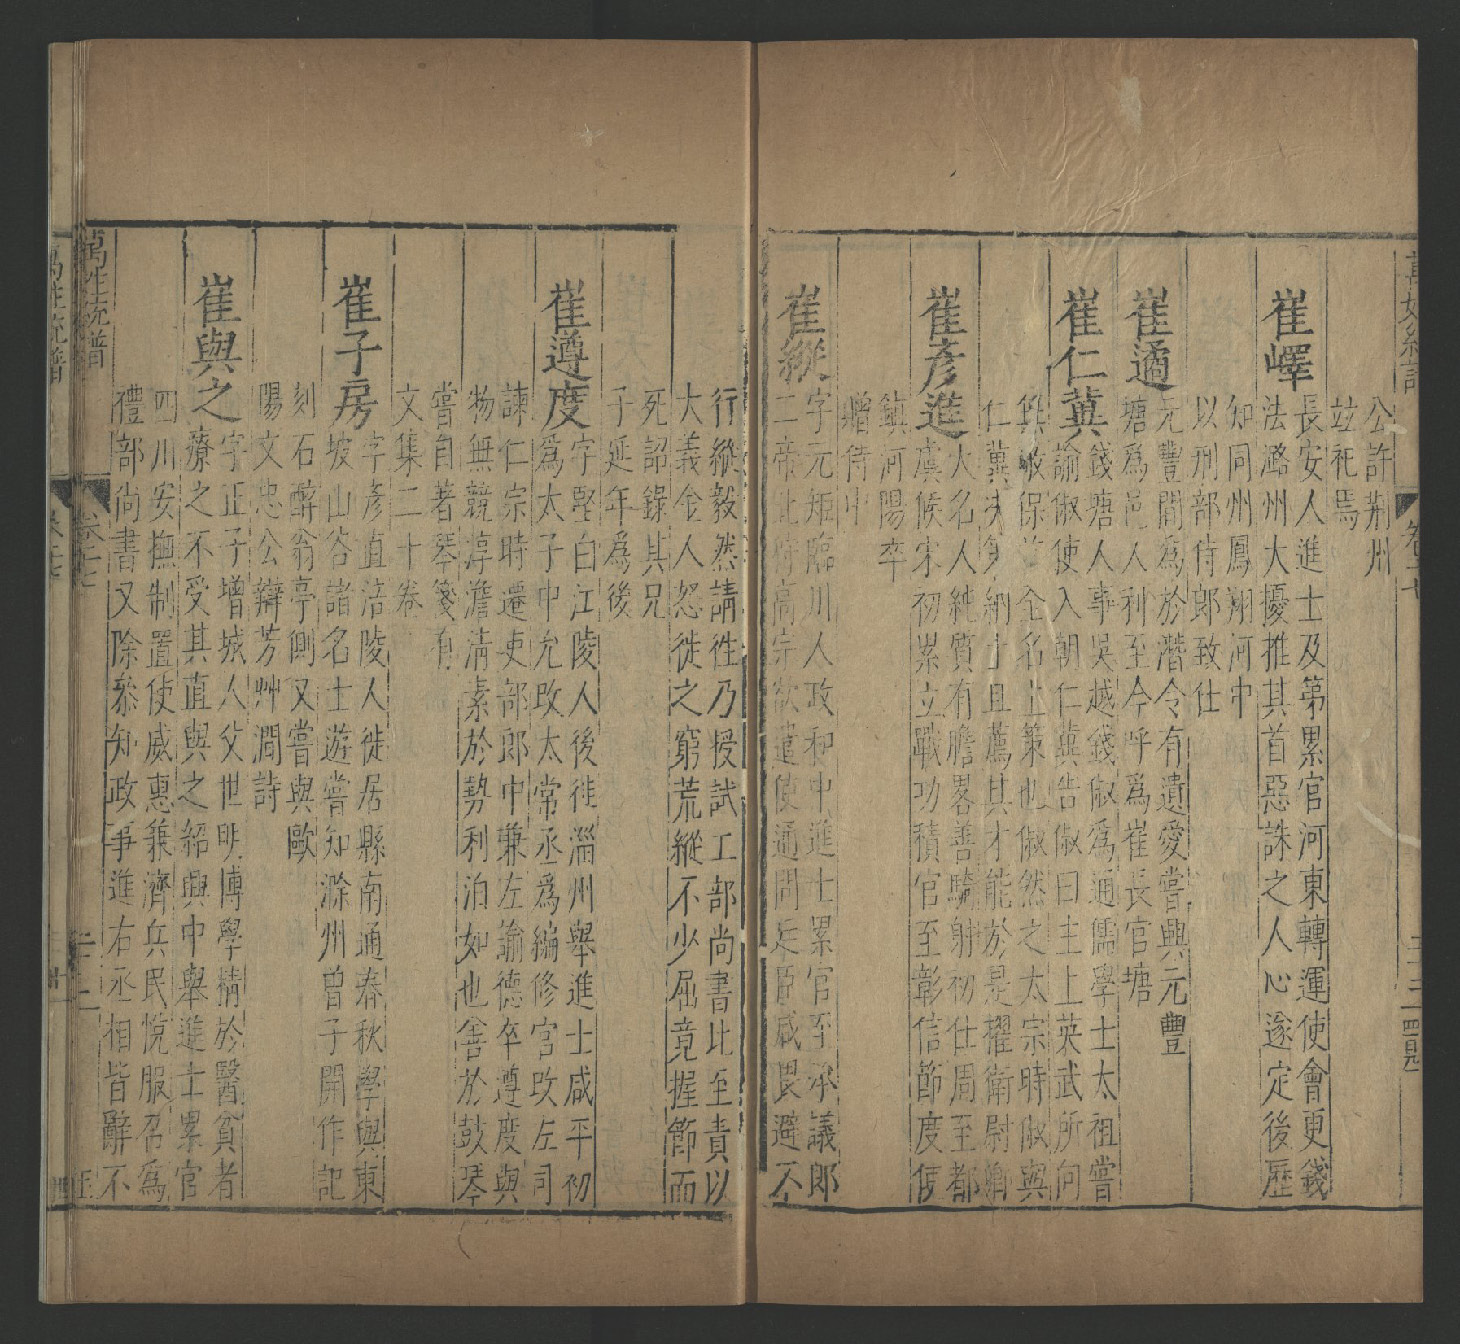 公許荆州
竝祀焉
崔嶧
長安人進士及第累官河東轉運使會更錢
法潞州大擾推其首惡誅之人心遂定後歷
知同州鳳翔河中
以刑部侍郎致仕
崔遹
元豐間爲於潛令有遺愛嘗興元豐
塘爲邑人利至今呼爲崔長官塘
崔仁冀
錢塘人事吳越錢俶爲通儒學士太祖嘗
諭俶使入朝仁冀告俶曰主上英武所向
保全名上策也俶然之太宗時俶與
仁冀納土且薦其才能於是擢衛尉卿
崔彥進
大名人純質有膽畧善騎射初仕周至都
虞候宋初累立戰功積官至彰信節度使
鎮河陽卒
贈侍中
崔縱
字元矩臨川人政和中進士累官至承議郎
二帝北狩高宗欲遣使通問廷臣咸畏避不
行縱毅然請徃乃授試工部尚書比至責以
大義金人怒徙之窮荒縱不少屈竟握節而
死詔錄其兄
子延年爲後
崔遵度
字堅白江陵人後徙淄州舉進士咸平初
爲太子中允改太常丞爲編修官改左司
諫仁宗時遷吏部郎中兼左諭德卒遵度與
物無競淳澹清素於勢利泊如也善於鼓琴
嘗自著琴箋有
文集二十卷
崔子房
字彥直涪陵人徙居縣南通春秋學與東
坡山谷諸名士遊嘗知滁州曾子開作記
刻石醉翁亭側又嘗與歐
陽文忠公辯芳艸澗詩
崔與之
字正子增城人父世明博學精於醫貧者
療之不受其直與之紹興中舉進士累官
四川安撫制置使威惠兼濟兵民悅服召爲
禮部尚書又除叅知政事進右丞相皆辭不
萬姓統譜
卷之十七